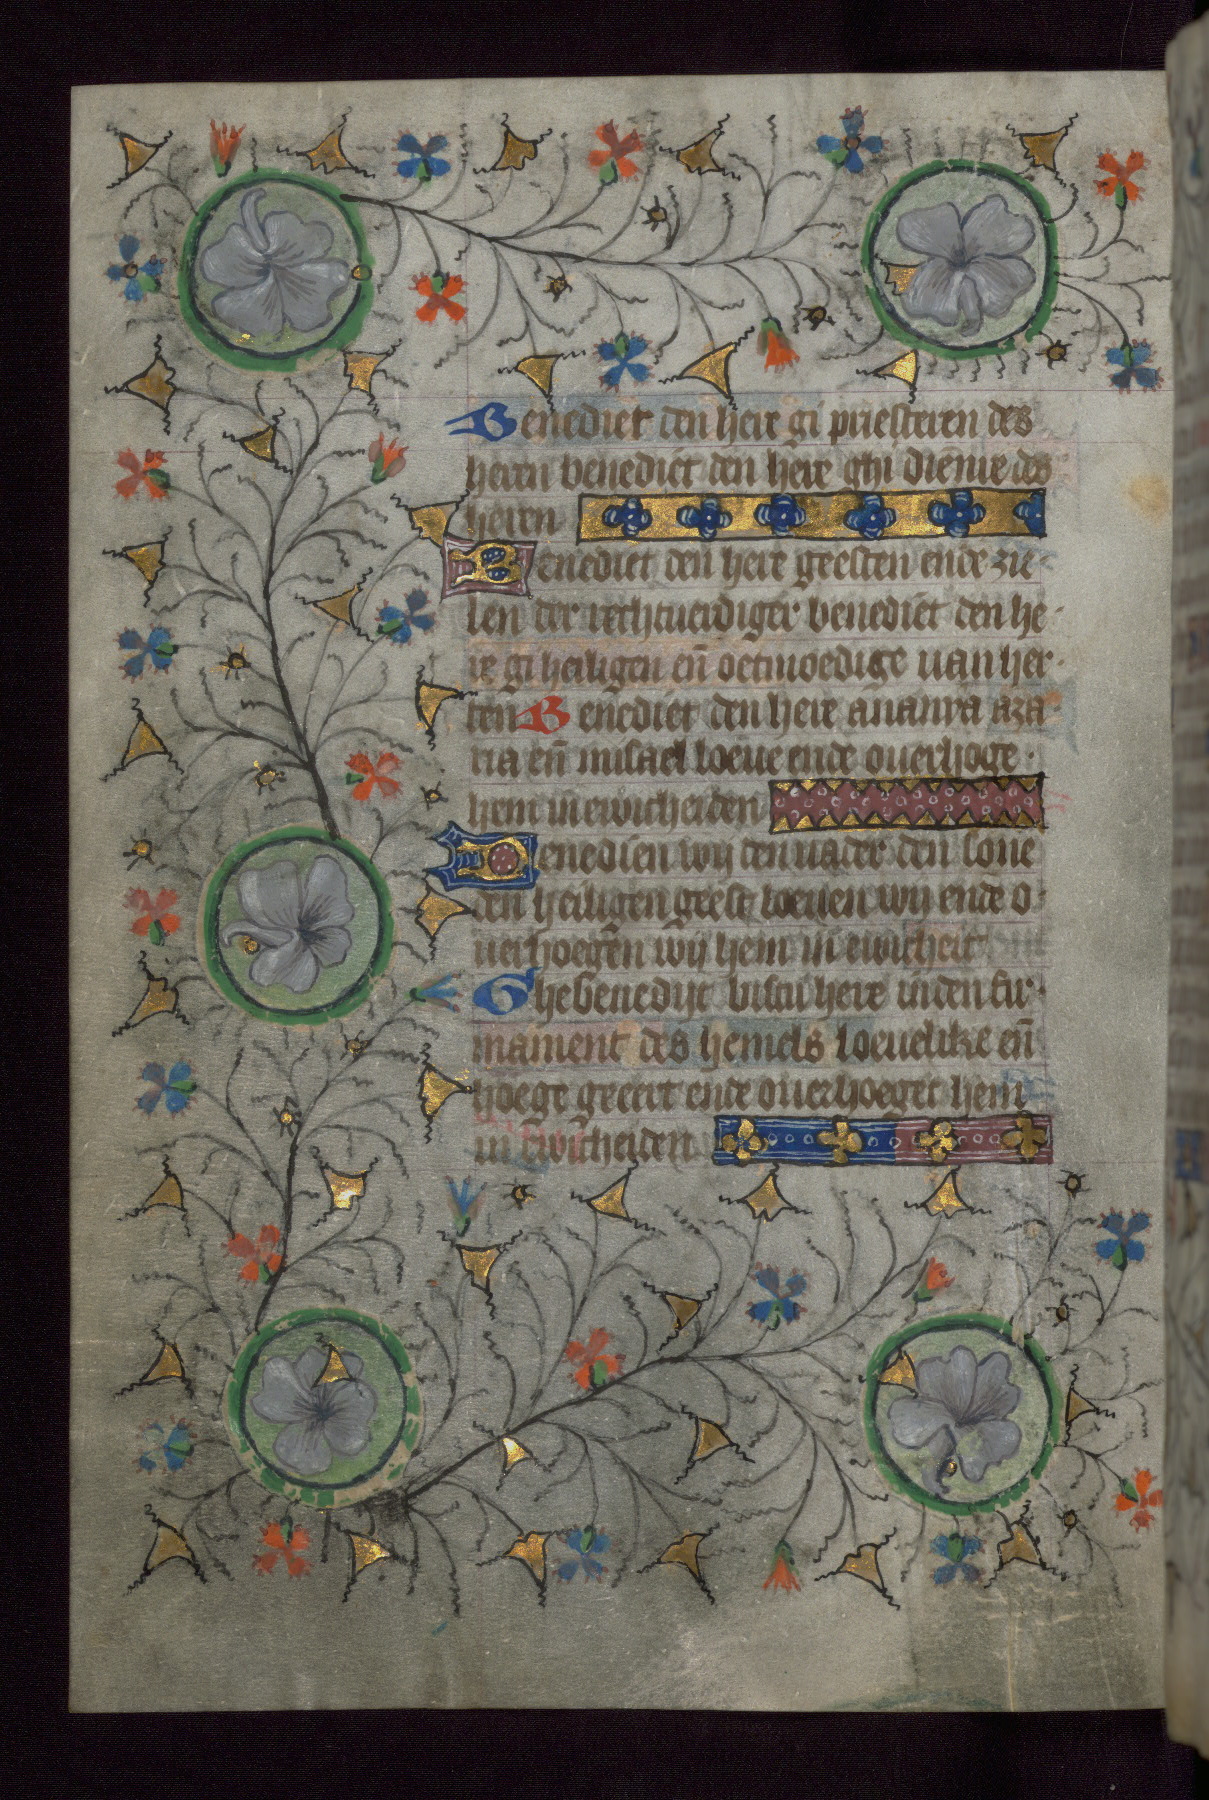 Benediet den here gi priesteren des
heren benediet den here ghi dienre des
heren
Benediet den here geesten ende zie
len der rechtuerdiger benediet den he
re gi heiligen eñ oetmoedige uan her
ten Benediet den here anania aza
ria eñ misael loeue ende ouerhoge
hem in ewicheiden
Benedien wij den uader den sone
den heiligen geest loeuen wij ende o
uerhoegen wij hem in ewicheit
Ghebenedijt bistu here in den fir
mament des hemels loeuelike eñ
hoege geeert ende ouerhoeget hem
in ewicheiden